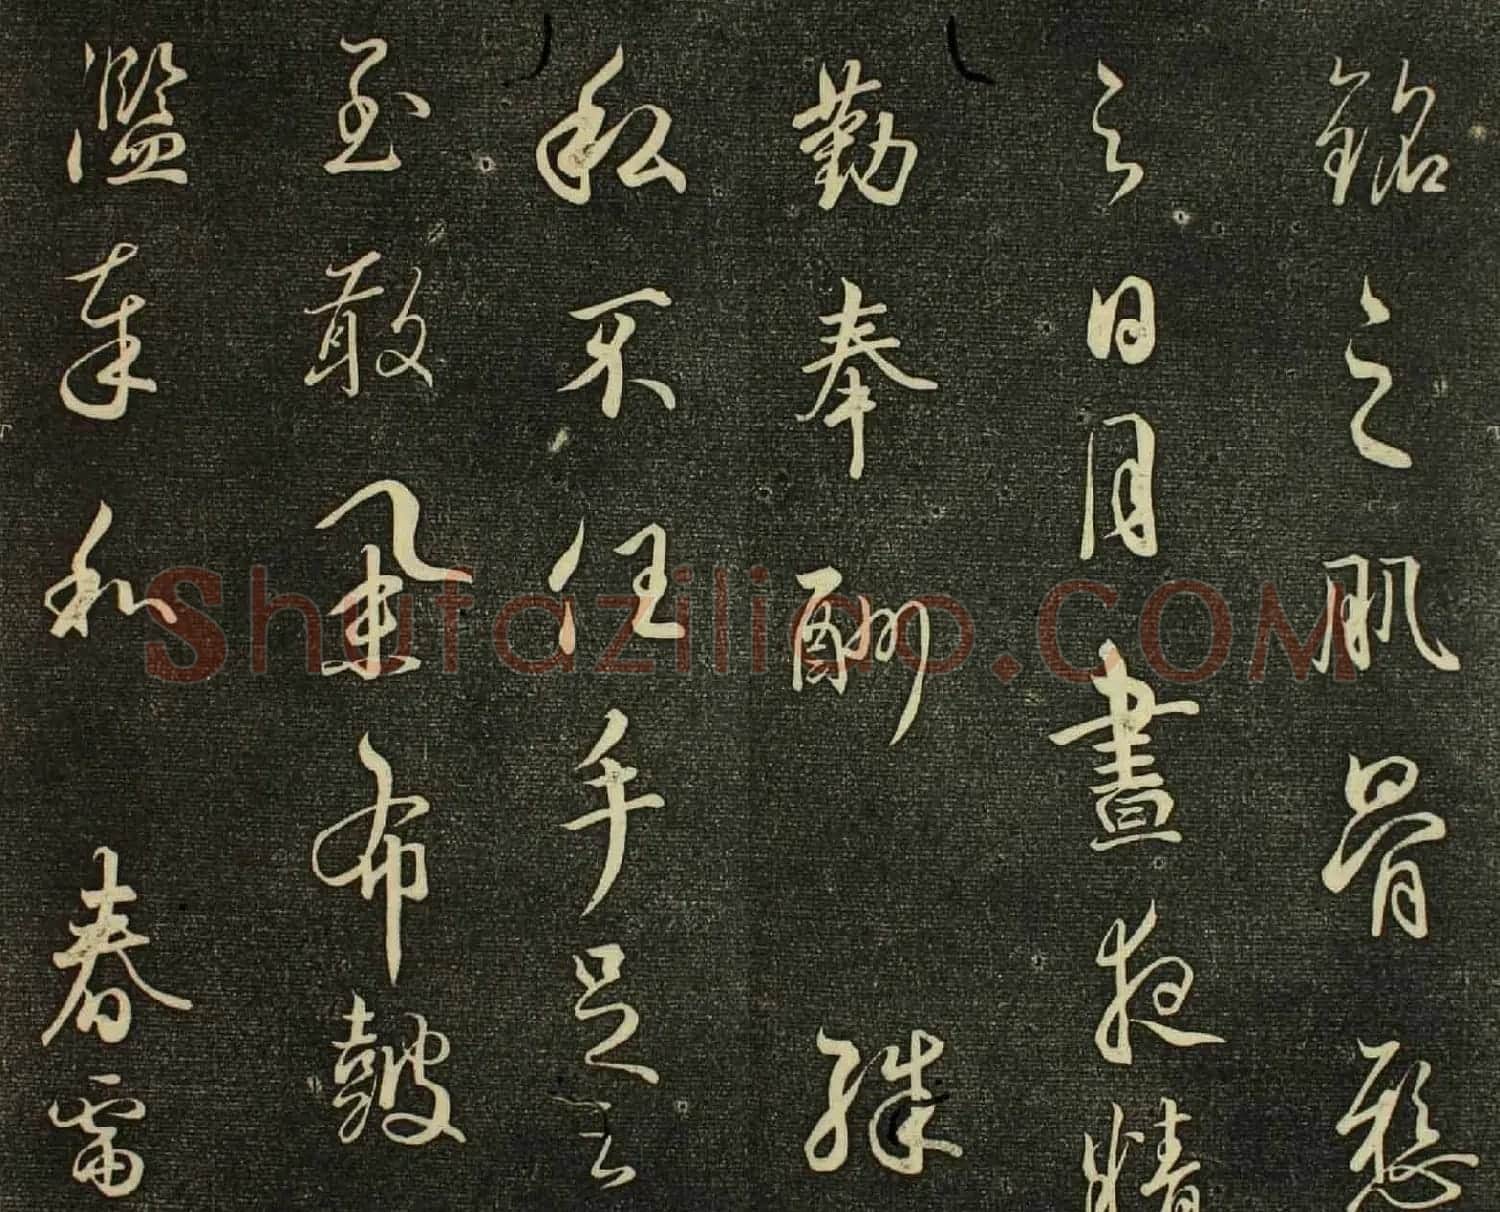 銘之肌骨
之日月晝夜精
勤奉酬殊
私不任手足之
至敢布鼓
濫奉和春雷
Shufaziliao.COM